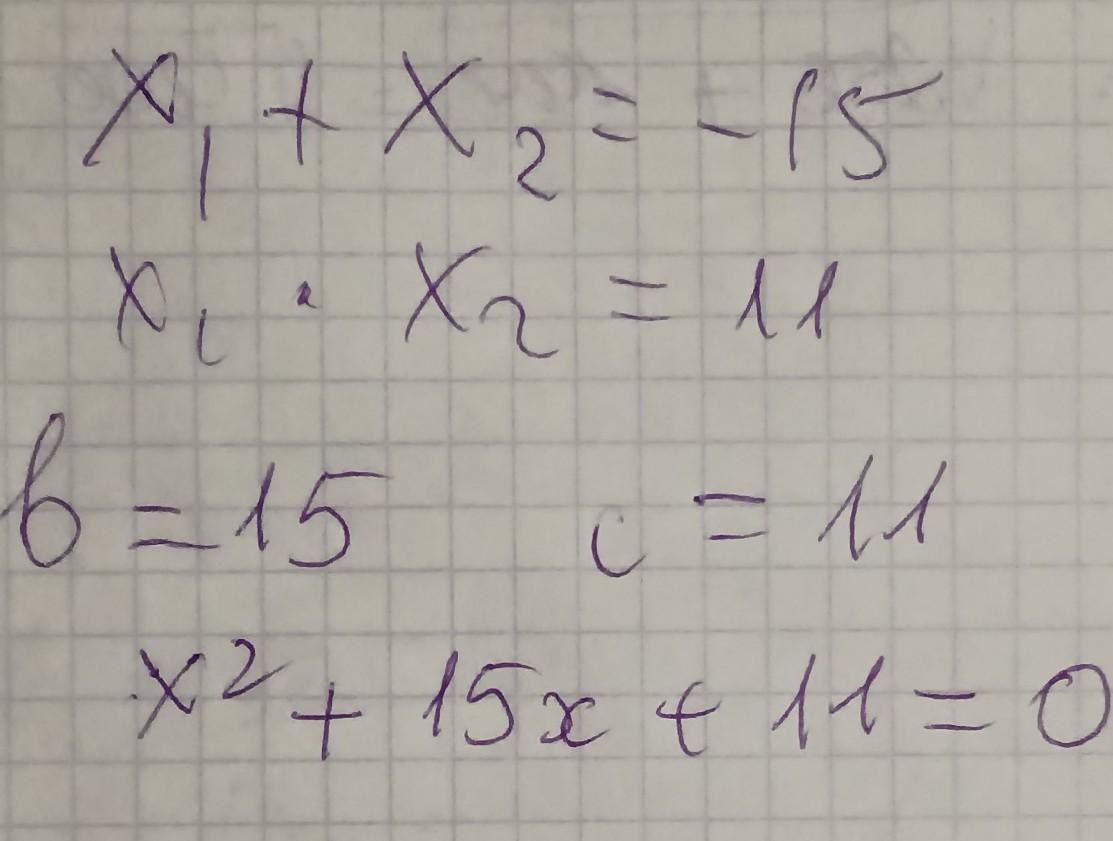 x₁ + x₂ = -15
x₁ · x₂ = 11
b = 15 c = 11
x² + 15x + 11 = 0